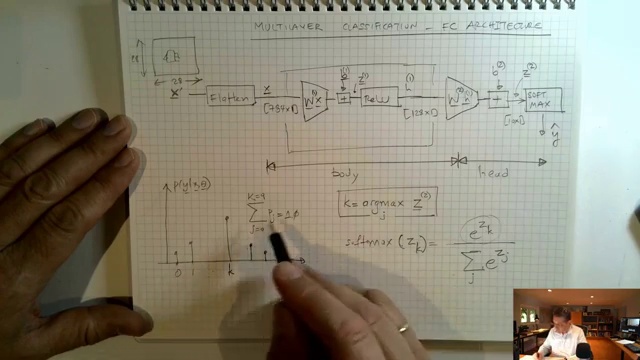 MULTILAYER CLASSIFICATION - FC ARCHITECTURE
28
28
x
Flatten
x
[784x1]
W⁽¹⁾x
+
b⁽¹⁾
z⁽¹⁾
ReLU
h⁽¹⁾
[128x1]
W⁽²⁾h⁽¹⁾
+
b⁽²⁾
z⁽²⁾
[10x1]
SOFT
MAX
ŷ
body
head
p(y|x,θ)
K=9
Σ Pj = 1.0
j=0
0 1 k
k = argmax z⁽²⁾
j
softmax(z_k) = e^{z_k} / Σ_j e^{z_j}